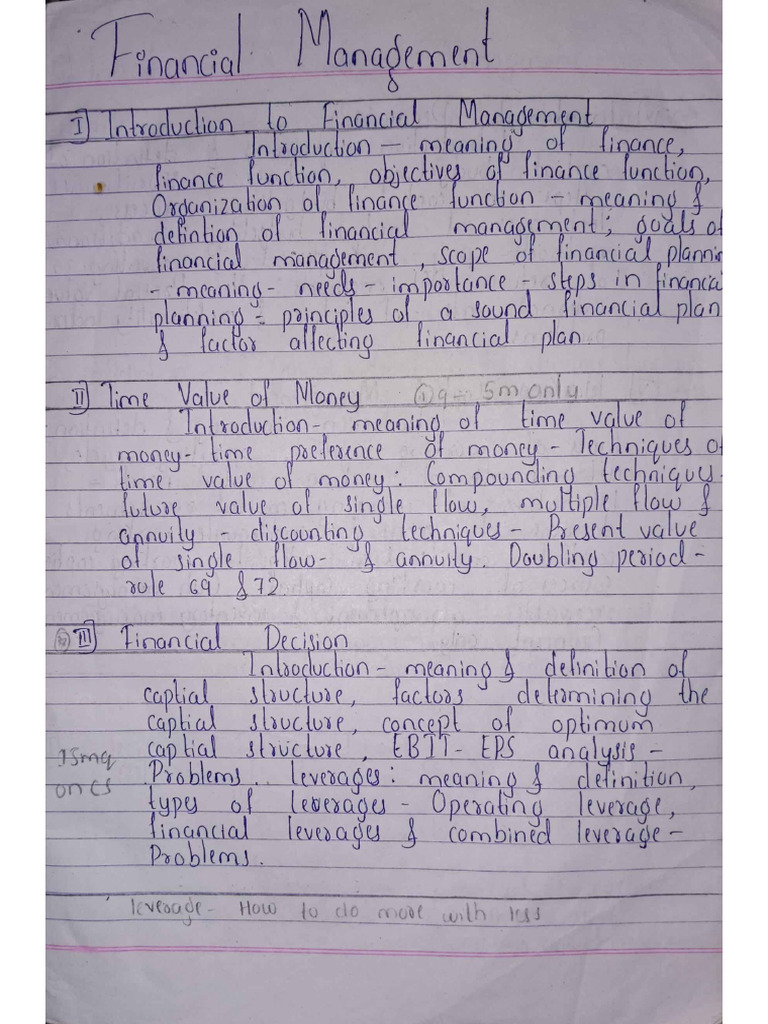 Financial Management
I] Introduction to Financial Management
Introduction - meaning of finance,
finance function, objectives of finance function,
Organization of finance function - meaning &
defintion of financial management; goals of
financial management, scope of financial plannin
- meaning - needs - importance - steps in financial
planning = principles of a sound financial plan
& factor affecting financial plan
II] Time Value of Money ① q - 5m only
Introduction - meaning of time value of
money - time preference of money - Techniques of
time value of money: Compounding techniques.
future value of single flow, multiple flow &
annuity - discounting techniques - Present value
of single flow - & annuity. Doubling period -
rule 69 & 72
III] Financial Decision
Introduction - meaning & definition of
captial structure, factors determining the
captial structure, concept of optimum
captial structure, EBIT - EPS analysis -
15mq
on CS
Problems. leverages: meaning & definition,
types of leverages - Operating leverage,
financial leverages & combined leverage -
Problems.
leverage - How to do more with less